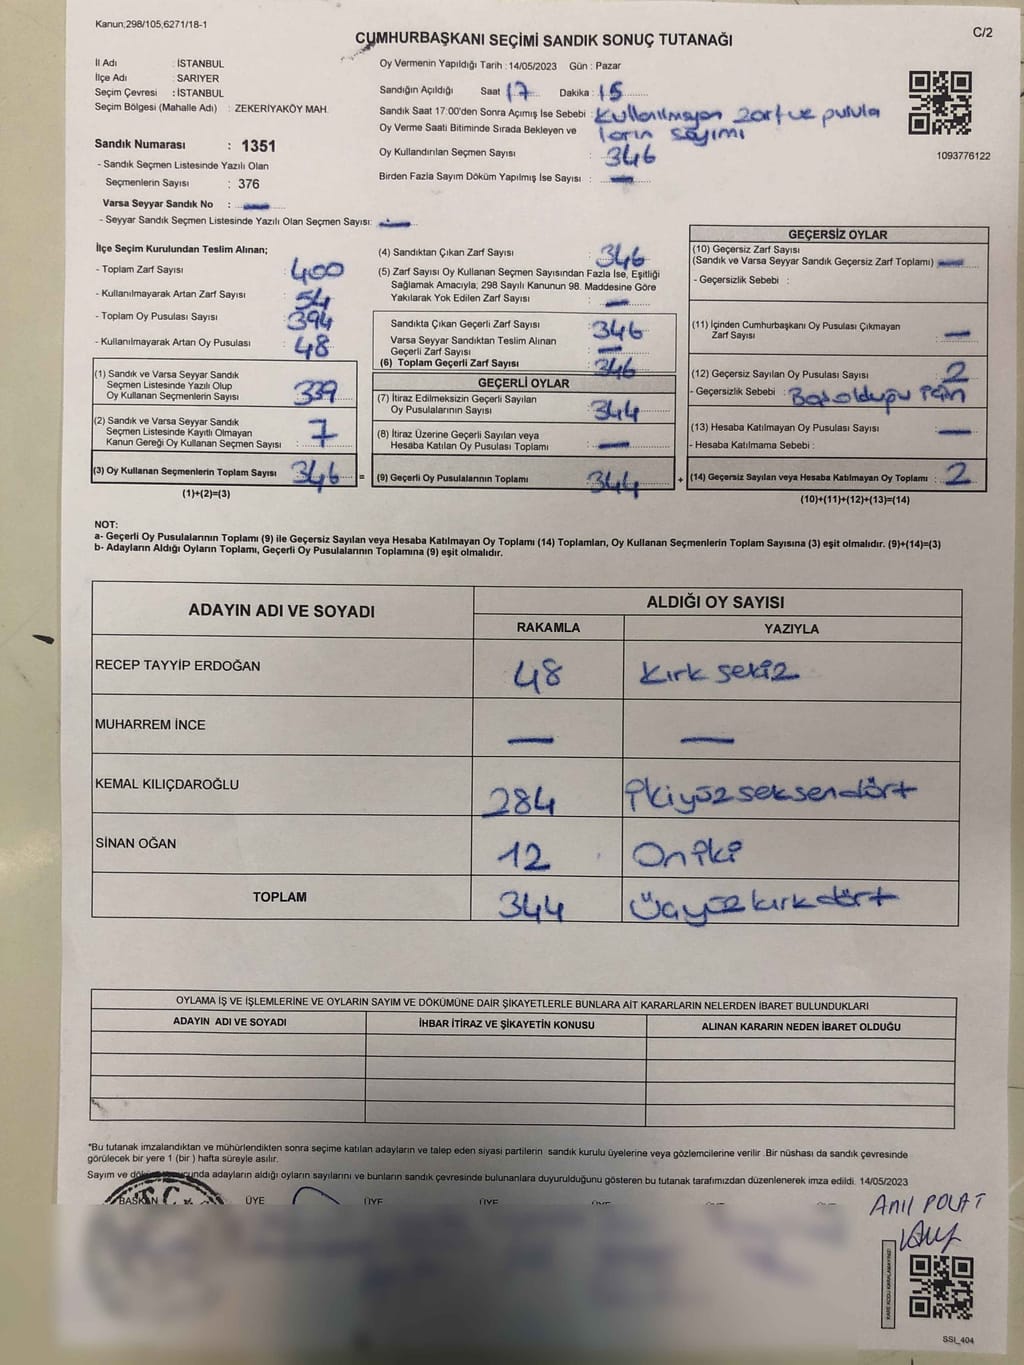 Kanun;298/105,6271/18-1
C/2
CUMHURBAŞKANI SEÇİMİ SANDIK SONUÇ TUTANAĞI
İl Adı : İSTANBUL
İlçe Adı : SARIYER
Seçim Çevresi : İSTANBUL
Seçim Bölgesi (Mahalle Adı) : ZEKERİYAKÖY MAH.
Sandık Numarası : 1351
- Sandık Seçmen Listesinde Yazılı Olan
Seçmenlerin Sayısı : 376
Varsa Seyyar Sandık No : —
- Seyyar Sandık Seçmen Listesinde Yazılı Olan Seçmen Sayısı: —
Oy Vermenin Yapıldığı Tarih : 14/05/2023 Gün : Pazar
Sandığın Açıldığı Saat : 17 Dakika : 15
Sandık Saat 17:00'den Sonra Açımış İse Sebebi : Kullanılmayan zarf ve pusula
ların sayımı
Oy Verme Saati Bitiminde Sırada Bekleyen ve
Oy Kullandırılan Seçmen Sayısı : 346
Birden Fazla Sayım Döküm Yapılmış İse Sayısı : —
1093776122
İlçe Seçim Kurulundan Teslim Alınan;
- Toplam Zarf Sayısı : 400
- Kullanılmayarak Artan Zarf Sayısı : 54
- Toplam Oy Pusulası Sayısı : 394
- Kullanılmayarak Artan Oy Pusulası : 48
(1) Sandık ve Varsa Seyyar Sandık
Seçmen Listesinde Yazılı Olup
Oy Kullanan Seçmenlerin Sayısı : 339
(2) Sandık ve Varsa Seyyar Sandık
Seçmen Listesinde Kayıtlı Olmayan
Kanun Gereği Oy Kullanan Seçmen Sayısı : 7
(3) Oy Kullanan Seçmenlerin Toplam Sayısı : 346 =
(1)+(2)=(3)
(4) Sandıktan Çıkan Zarf Sayısı : 346
(5) Zarf Sayısı Oy Kullanan Seçmen Sayısından Fazla İse, Eşitliği
Sağlamak Amacıyla; 298 Sayılı Kanunun 98. Maddesine Göre
Yakılarak Yok Edilen Zarf Sayısı : —
Sandıkta Çıkan Geçerli Zarf Sayısı : 346
Varsa Seyyar Sandıktan Teslim Alınan
Geçerli Zarf Sayısı : —
(6) Toplam Geçerli Zarf Sayısı : 346
GEÇERLİ OYLAR
(7) İtiraz Edilmeksizin Geçerli Sayılan
Oy Pusulalarının Sayısı : 344
(8) İtiraz Üzerine Geçerli Sayılan veya
Hesaba Katılan Oy Pusulası Toplamı : —
(9) Geçerli Oy Pusulalarının Toplamı : 344 +
GEÇERSİZ OYLAR
(10) Geçersiz Zarf Sayısı
(Sandık ve Varsa Seyyar Sandık Geçersiz Zarf Toplamı) : —
- Geçersizlik Sebebi :
(11) İçinden Cumhurbaşkanı Oy Pusulası Çıkmayan
Zarf Sayısı : —
(12) Geçersiz Sayılan Oy Pusulası Sayısı : 2
- Geçersizlik Sebebi : Boş olduğu için
(13) Hesaba Katılmayan Oy Pusulası Sayısı : —
- Hesaba Katılmama Sebebi :
(14) Geçersiz Sayılan veya Hesaba Katılmayan Oy Toplamı : 2
(10)+(11)+(12)+(13)=(14)
NOT:
a- Geçerli Oy Pusulalarının Toplamı (9) ile Geçersiz Sayılan veya Hesaba Katılmayan Oy Toplamı (14) Toplamları, Oy Kullanan Seçmenlerin Toplam Sayısına (3) eşit olmalıdır. (9)+(14)=(3)
b- Adayların Aldığı Oyların Toplamı, Geçerli Oy Pusulalarının Toplamına (9) eşit olmalıdır.
ADAYIN ADI VE SOYADI ALDIĞI OY SAYISI
RAKAMLA YAZIYLA
RECEP TAYYİP ERDOĞAN 48 Kırk sekiz
MUHARREM İNCE — —
KEMAL KILIÇDAROĞLU 284 İkiyüz seksen dört
SİNAN OĞAN 12 On iki
TOPLAM 344 Üçyüz kırk dört
OYLAMA İŞ VE İŞLEMLERİNE VE OYLARIN SAYIM VE DÖKÜMÜNE DAİR ŞİKAYETLERLE BUNLARA AİT KARARLARIN NELERDEN İBARET BULUNDUKLARI
ADAYIN ADI VE SOYADI İHBAR İTİRAZ VE ŞİKAYETİN KONUSU ALINAN KARARIN NEDEN İBARET OLDUĞU
*Bu tutanak imzalandıktan ve mühürlendikten sonra seçime katılan adayların ve talep eden siyasi partilerin sandık kurulu üyelerine veya gözlemcilerine verilir .Bir nüshası da sandık çevresinde
görülecek bir yere 1 (bir ) hafta süreyle asılır.
Sayım ve döküm sonucunda adayların aldığı oyların sayılarını ve bunların sandık çevresinde bulunanlara duyurulduğunu gösteren bu tutanak tarafımızdan düzenlenerek imza edildi. 14/05/2023
BAŞKAN ÜYE ÜYE ÜYE ÜYE ÜYE
T.C.
Anıl POLAT
KARE KODU KARALAMAYINIZ!
SSI_404